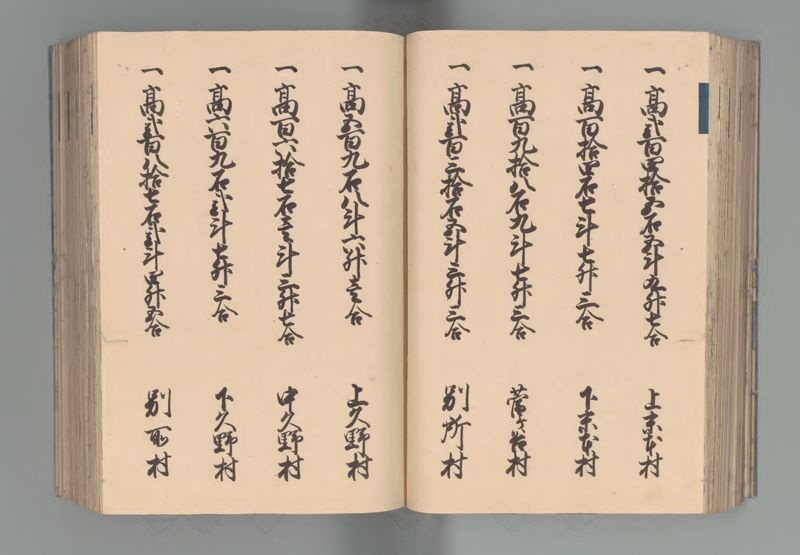 一 髙弐百四拾五石五斗九升七合 上 村
一 髙百拾四石七斗七升三合 下 村
一 髙百九拾八石九斗七升三合 菅ヶ谷村
一 髙弐百三拾石五斗三升三合 別所村
一 髙五百九石八斗六升壱合 上久野村
一 髙百六拾七石壱斗三升七合 中久野村
一 髙六百九石弐斗七升三合 下久野村
一 髙弐百八拾七石弐斗四升五合 別所村